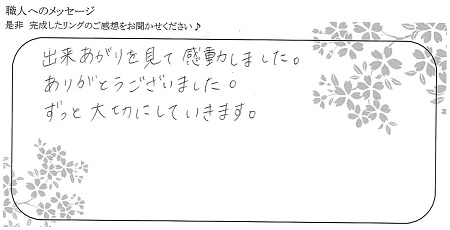 職人へのメッセージ
是非 完成したリングのご感想をお聞かせください♪
出来あがりを見て感動しました。
ありがとうございました。
ずっと大切にしていきます。